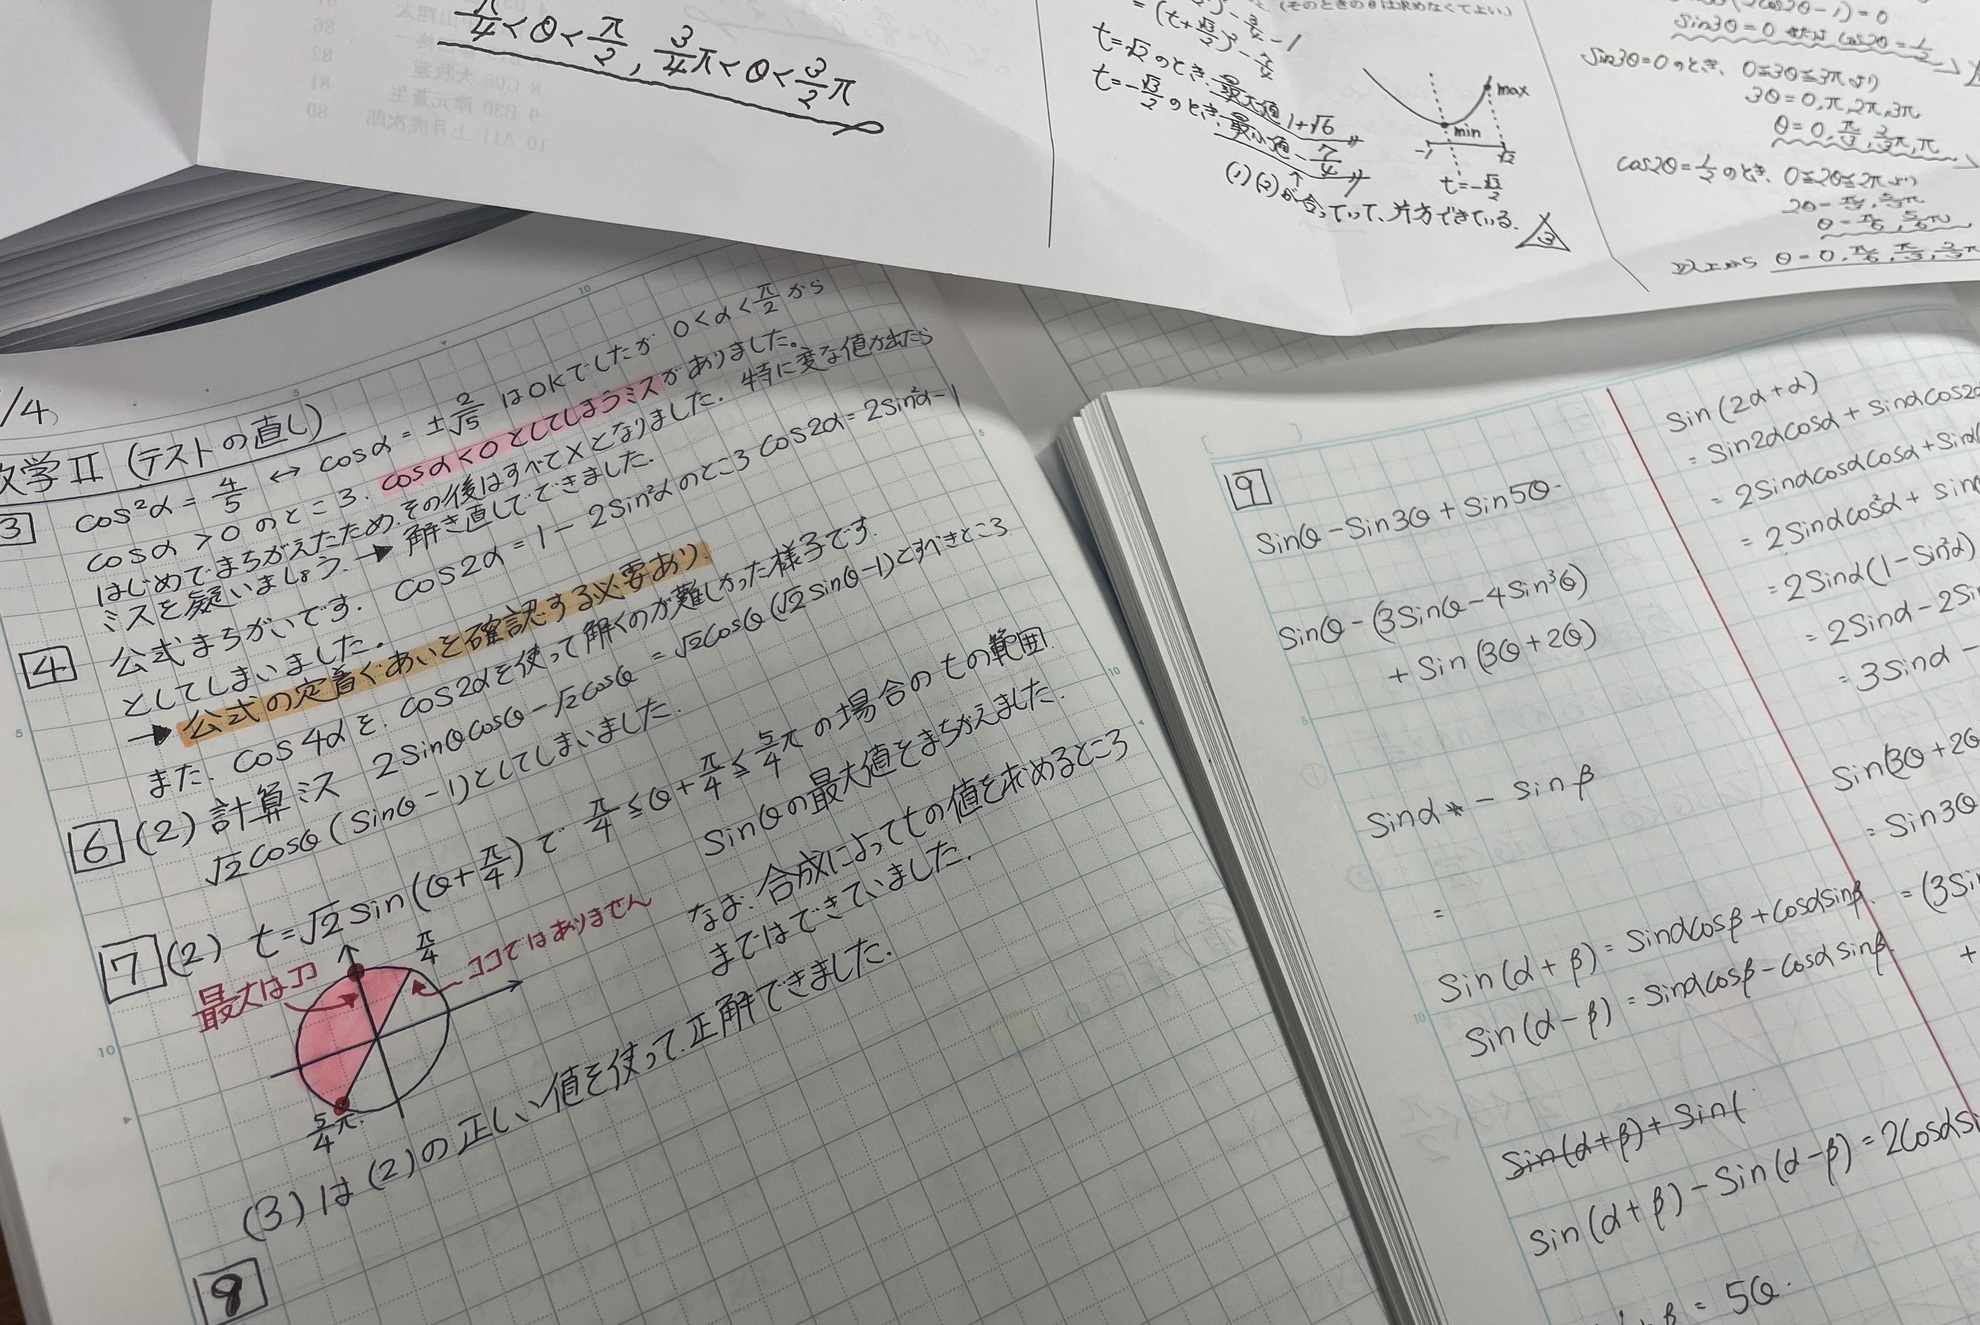 π/4 < θ < π/2 , 3/4π < θ < 3/2π
(そのときのθは求めなくてよい)
t=√2のとき、最大値 1+√6
t=-√3/2のとき、最小値 -7/4
(1)(2)が合っていて、片方できている。
3
max
min
-1
√2
t=-√3/2
sin3θ=0 または cos2θ=1/2
sin3θ=0のとき、0≦3θ≦3πより
3θ=0,π,2π,3π
θ=0, π/3, 2/3π, π
cos2θ=1/2のとき、0≦2θ≦2πより
2θ=π/3, 5/3π
θ=π/6, 5/6π
以上から θ=0, π/6, π/3, 2/3π
10 A11
80
9 B30
81
8 C05
82
86
/4)
数学Ⅱ (テストの直し)
3 cos²α = 4/5 ↔ cosα = ±2/√5 はOKでしたが 0<α<π/2から
cosα>0のところ、cosα<0としてしまうミスがありました。
はじめでまちがえたため、その後はすべて×となりました。特に変な値が出たら
ミスを疑いましょう。→ 解き直してできました。
4 公式まちがいです。 cos2α = 1-2sin²αのところ cos2α=2sin²α-1
としてしまいました。
→ 公式の定着ぐあいを確認する必要あり.
また、cos4αを、cos2αを使って解くのが難しかった様子です.
6 (2) 計算ミス 2sinθcosθ-√2cosθ = √2cosθ(√2sinθ-1)とすべきところ
√2cosθ(sinθ-1)としてしまいました.
7 (2) t=√2sin(θ+π/4)で π/4≦θ+π/4≦5/4πの場合のtの範囲
sinθの最大値をまちがえました.
なお、合成によってtの値を求めるところ
まではできていました.
最大はココ
π/4
ココではありません
5/4π
(3)は(2)の正しい値を使って、正解できました.
8
9
sinθ-sin3θ+sin5θ
sinθ-(3sinθ-4sin³θ)
+sin(3θ+2θ)
sinα - sinβ
=
sin(α+β)=sinαcosβ+cosαsinβ
sin(α-β)=sinαcosβ-cosαsinβ
sin(α+β)+sin(
sin(α+β)-sin(α-β)=2cosαsi
β = 5θ
sin(2α+α)
=sin2αcosα+sinαcos2α
=2sinαcosαcosα+sinα(
=2sinαcos²α+sinα
=2sinα(1-sin²α)
=2sinα-2sin
=3sinα-
sin(3θ+2θ
=sin3θ
=(3sin
+